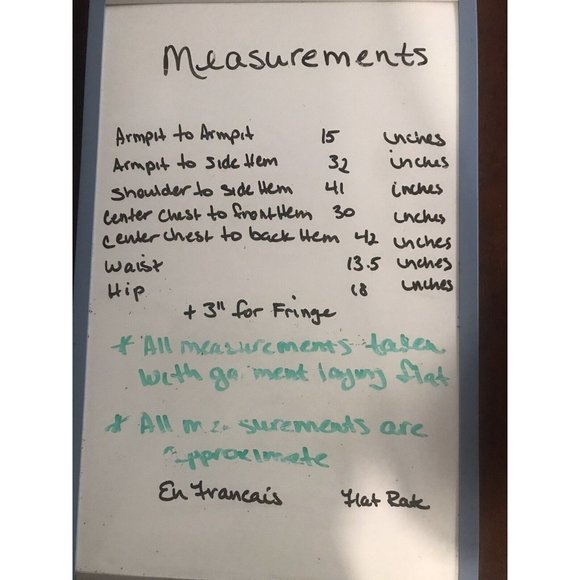 Measurements
Armpit to Armpit 15 inches
Armpit to Side Hem 32 inches
Shoulder to Side Hem 41 inches
Center Chest to Front Hem 30 inches
Center Chest to back Hem 42 inches
Waist 13.5 inches
Hip 18 inches
+ 3" for Fringe
* All measurements taken
with ga ment laying flat
* All me surements are
approximate
En Francais Flat Rate